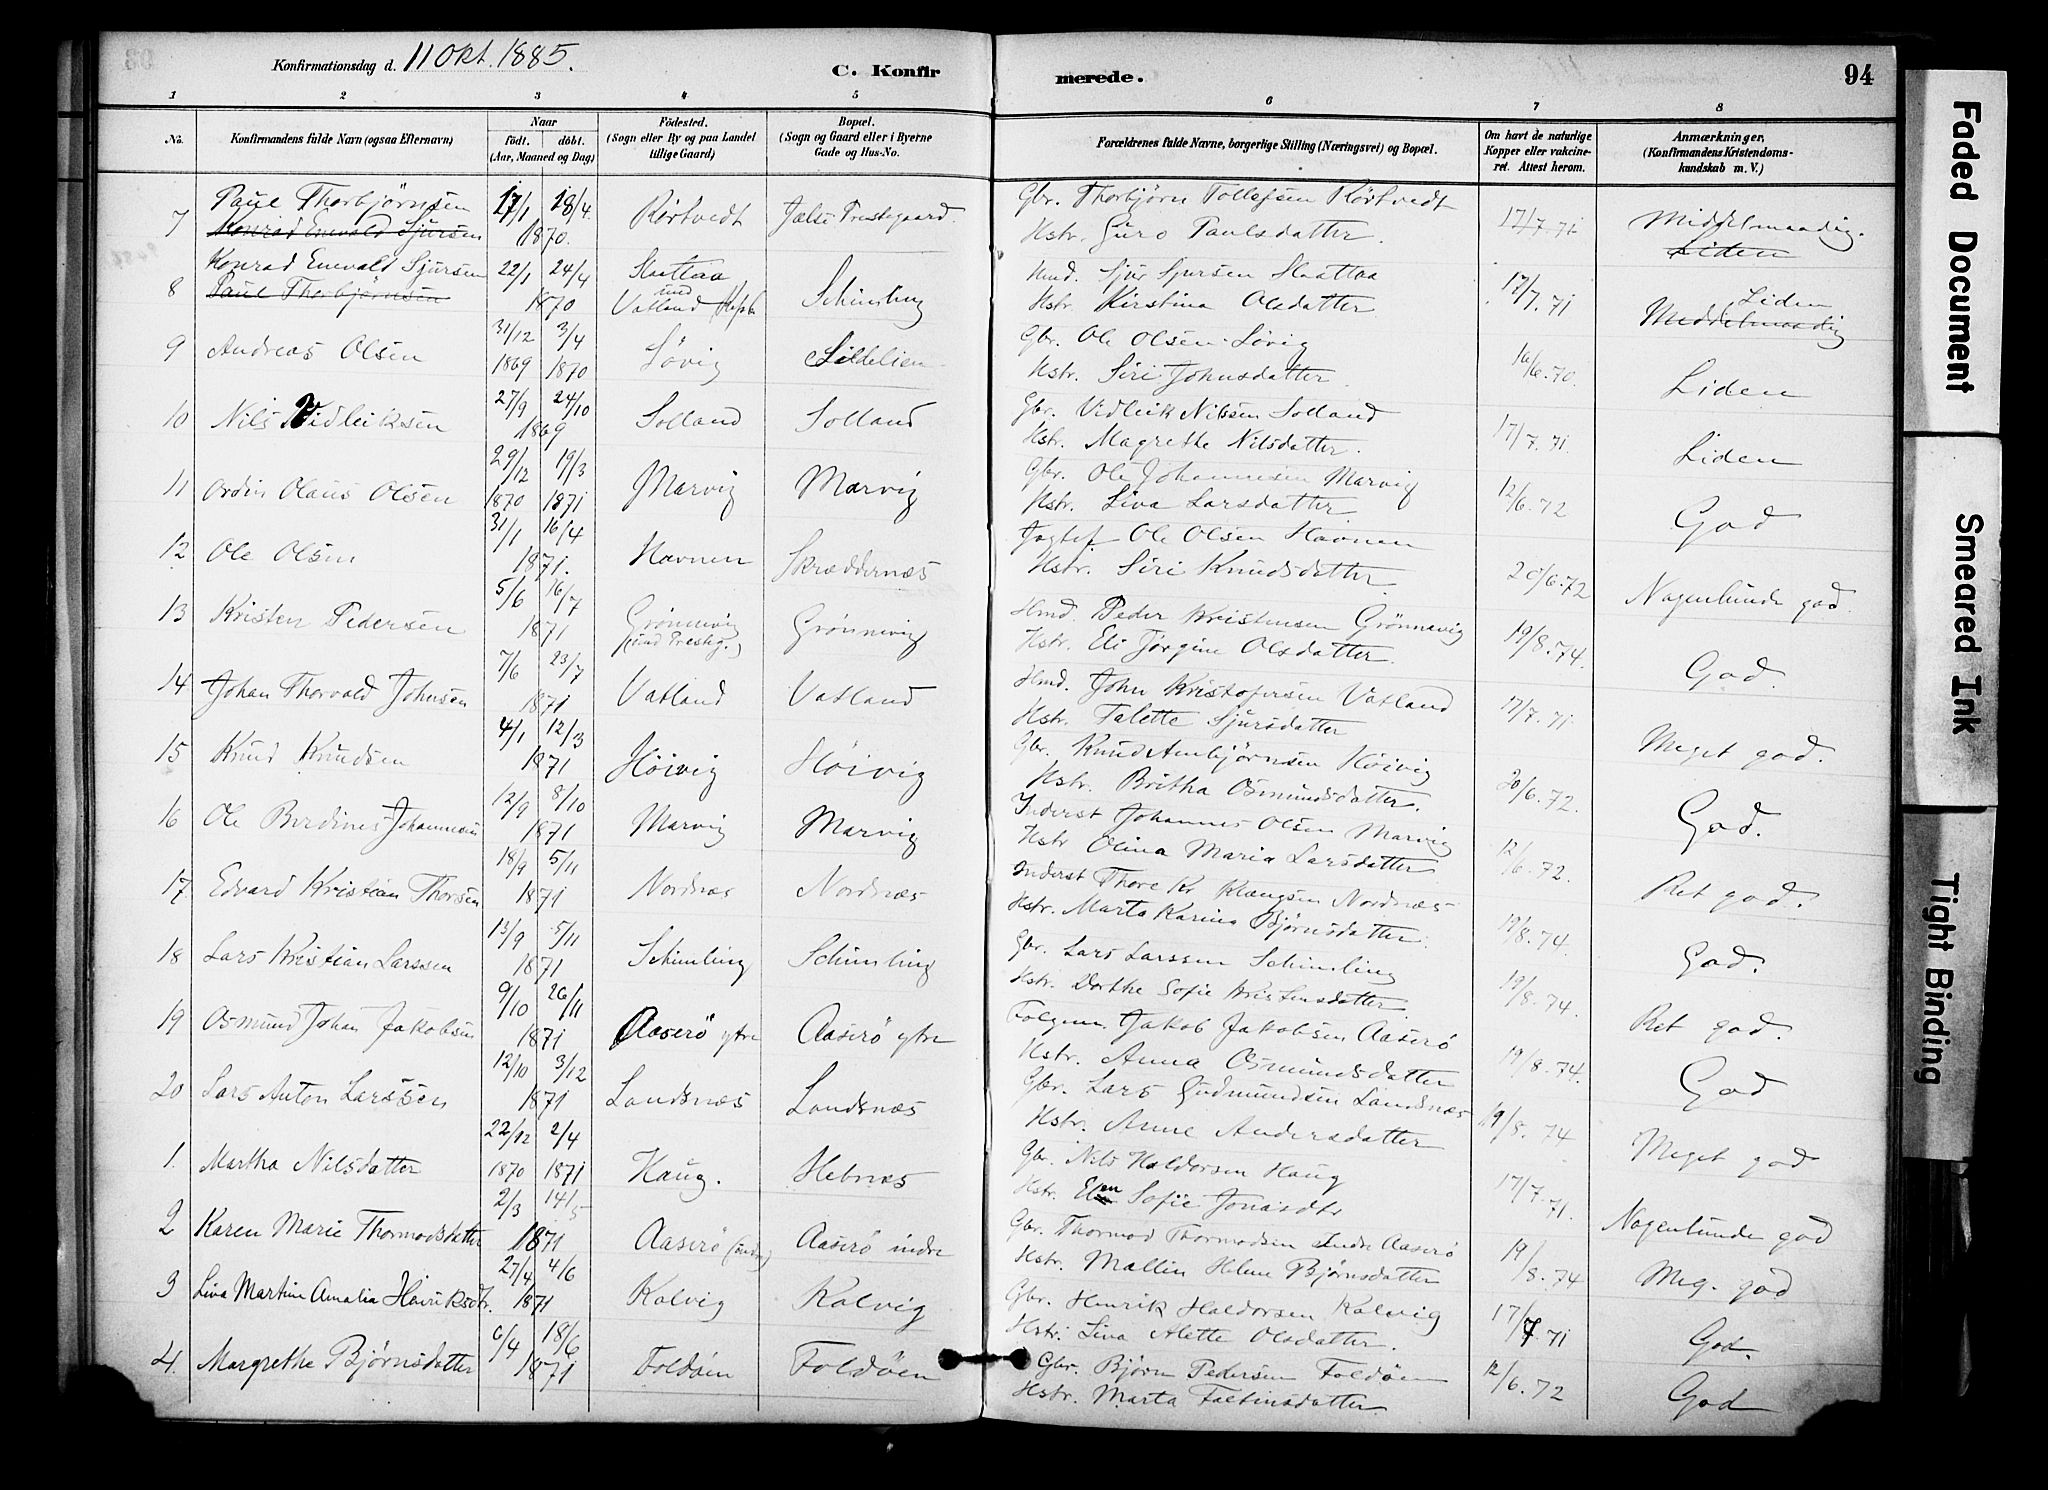 Konfirmationsdag d. 11 Okt. 1885.
C. Konfir
merede.
94
1 2 3 4 5 6 7 8
No. Konfirmandens fulde Navn (ogsaa Efternavn) Naar født. døbt. (Aar, Maaned og Dag) Födested. (Sogn eller By og paa Landet tillige Gaard) Bopæl. (Sogn og Gaard eller i Byerne Gade og Hus-No. Forældrenes fulde Navne, borgerlige Stilling (Næringsvei) og Bopæl. Om havt de naturlige Kopper eller vakcineret. Attest herom. Anmærkninger. (Konfirmandens Kristendomskundskab m. V.)
Paul Thorbjørnsen 17/1 18/4 Rörtvedt Jælse Prestegaard. Gbr. Thorbjörn Tollefsen Rörtvedt 17/7.71 Middelmaadig.
7 Konrad Enevald Sjursen 1870. Hstr. Guro Paulsdatter. Liden
Konrad Enevald Sjursen 22/1 24/4 Slattaa Hmd. Sjur Sjursen Slaattaa 17/7.71 Liden
8 Paul Thorbjørnsen 1870 und Vatland Schimling Hstr. Kirstina Olsdatter Middelmaadig
9 Andreas Olsen 31/12 1869 3/4 1870 Løvig Sildelien Gbr. Ole Olsen Løvig 16/6.70. Liden
Hstr. Siri Johnsdatter
10 Nils Vidleiksen 27/9 24/10 1869 Solland Solland Gbr. Vidleik Nilsen Solland 17/7.71. Liden
Hstr. Magrethe Nilsdatter.
11 Ordin Olaus Olsen 29/12 1870 19/3 1871 Marvig Marvig Gbr. Ole Johannesen Marvig 12/6.72 God
Hstr. Liva Larsdatter
12 Ole Olsen 31/1 16/4 1871. Havnen Skræddernæs Ole Olsen Havnen 20/6.72 Nogenlunde god.
Hstr. Siri Knudsdatter
13 Kristen Pedersen 5/6 16/7 1871 Grönnevig (und Prestg.) Grönnevig Hmd. Peder Kristensen Grönnevig 19/8.74. God.
Hstr. Eli Jørgine Olsdatter.
14 Johan Thorvald Johnsen 7/6 23/7 1871 Vatland Vatland Hmd. John Kristofersen Vatland 17/7.71 Meget god.
Hstr. Talette Sjursdatter
15 Knud Knudsen 4/1 12/3 1871 Höivig Höivig Gbr. Knud Ambjörnsen Höivig 20/6.72. God.
Hstr. Britha Osmundsdatter.
16 Ole Berdines Johannesen 12/9 8/10 1871 Marvig Marvig Inderst Johannes Olsen Marvig 12/6.72. Ret god.
Hstr Olina Maria Larsdatter
17. Edvard Kristian Thorsen 18/9 5/11 1871 Nordnæs Nordnæs Inderst Thore Kr Klaugsen Nordnæs 19/8.74 God.
Hstr. Marta Karina Björnsdatter.
18 Lars Kristian Larssen 13/9 5/11 1871 Schimling Schimling Gbr. Lars Larssen Schimling 19/8.74. Ret god.
Hstr. Dorthe Sofie Kristensdatter
19 Osmund Johan Jakobsen 9/10 26/11 1871 Aaserö ytre Aaserö ytre Folgem. Jakob Jakobsen Aaserö 19/8.74. God
Hstr. Anna Osmundsdatter
20 Lars Anton Larssen 12/10 3/12 1871 Landsnæs Landsnæs Gbr. Lars Gudmundsen Landsnæs 19/8.74 Meget god
Hstr. Anne Andersdatter
1. Martha Nilsdatter 22/12 1870 2/4 1871 Haug. Hebnæs Gbr. Nils Haldorsen Haug 17/7.71. Nogenlunde god
Hstr. Elen Sofie Jonasdtr
2 Karen Marie Thormodsdatter 2/3 14/5 1871 Aaserö (indre) Aaserö indre Gbr. Thormod Thormodsen Indre Aaserö 19/8.74 Meg. god
Hstr. Mallin Helene Bjørnsdatter
3 Liva Martine Amalia Henriksdtr. 27/4 4/6 1871 Kalvig Kalvig Gbr. Henrik Haldorsen Kalvig 17/7.71 God.
Hstr. Lina Alette Olsdatter.
4. Margrethe Bjørnsdatter 6/4 18/6 1871 Foldöen Foldöen Gbr. Björn Pedersen Foldöen 12/6.72 God
Hstr. Marta Faltinsdatter.
Faded Document
Smeared Ink
Tight Binding